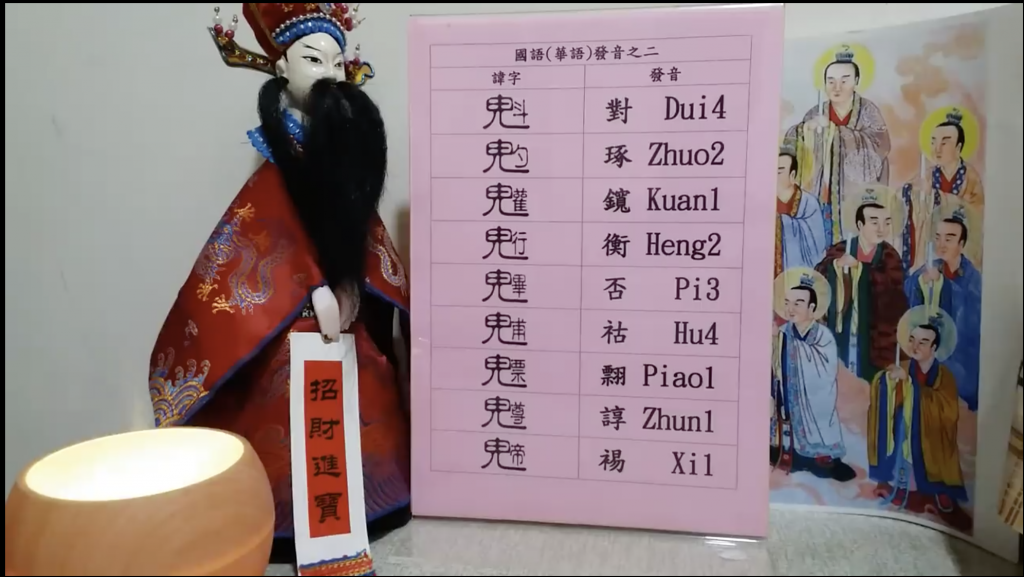 國語(華語)發音之二
諱字 發音
魁 對 Dui4
𩲃 琢 Zhuo2
䰢 Kuan1
𩲴 衡 Heng2
魓 否 Pi3
𩳐 祜 Hu4
魒 翲 Piao1
諄 Zhun1
裼 Xi1
招財進寶